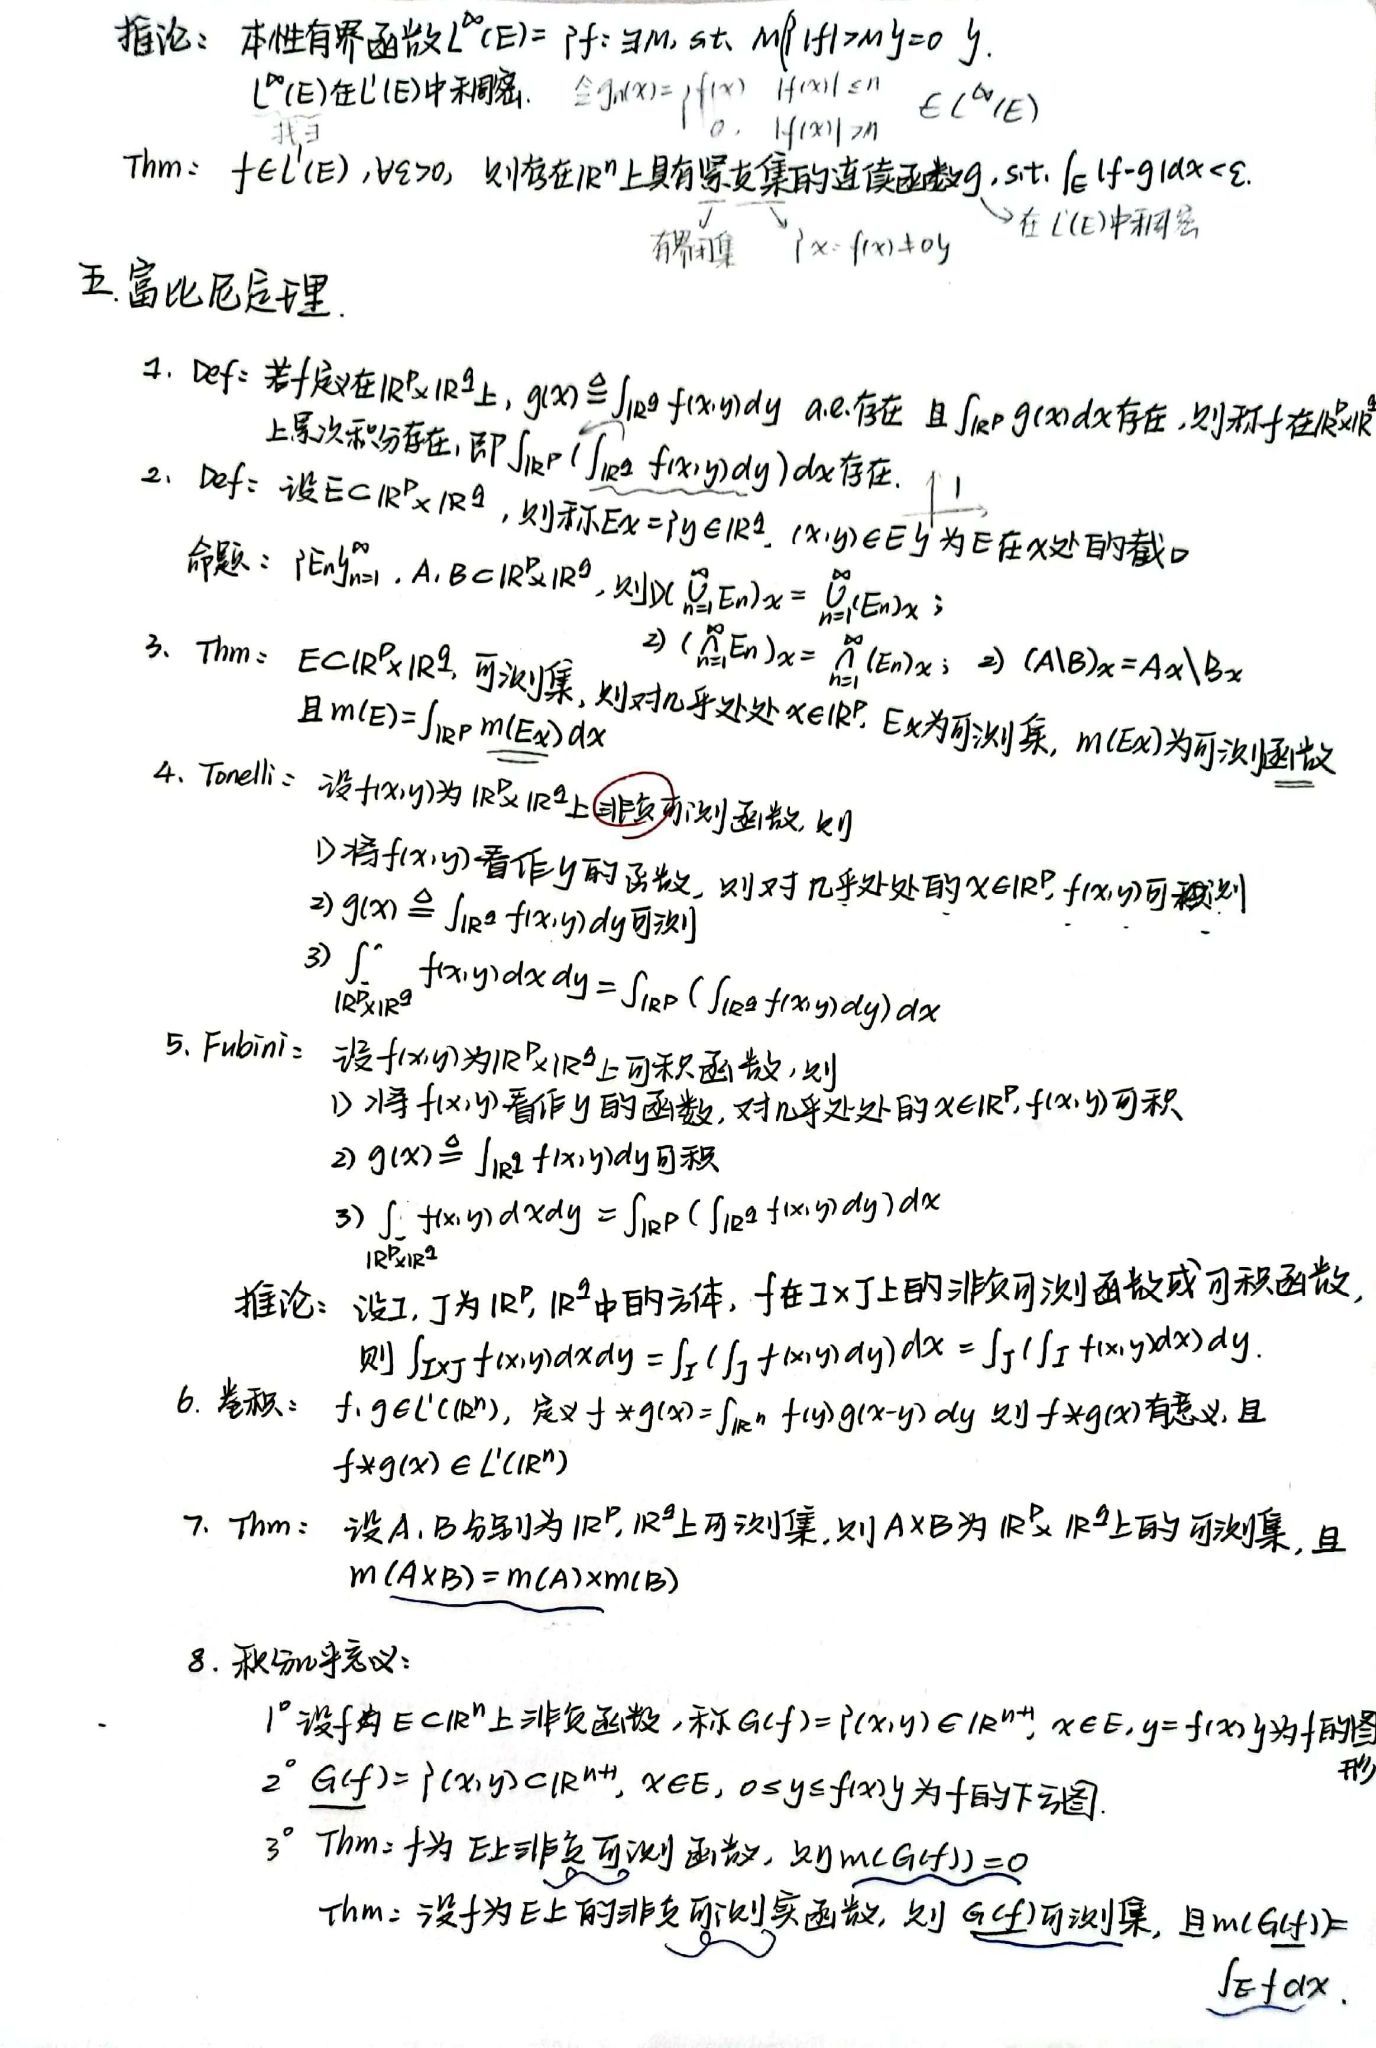 推论: 本性有界函数L^∞(E)={f: ∃M, s.t. m{|f|>M}=0}.
L^∞(E)在L¹(E)中稠密. 令gₙ(x)={f(x) |f(x)|≤n
0, |f(x)|>n ∈L^∞(E)
找∃
Thm: f∈L¹(E), ∀ε>0, 则存在ℝⁿ上具有紧支集的连续函数g, s.t. ∫_E|f-g|dx<ε.
↓ 有界闭集 ↘ {x: f(x)≠0} →在L¹(E)中稠密
五. 富比尼定理.
1. Def: 若f定义在ℝᵖ×ℝ^q上, g(x)≜∫_{ℝ^q} f(x,y)dy a.e.存在 且∫_{ℝᵖ} g(x)dx存在, 则称f在ℝᵖ×ℝ^q
上累次积分存在, 即∫_{ℝᵖ}(∫_{ℝ^q} f(x,y)dy)dx存在.
2. Def: 设E⊂ℝᵖ×ℝ^q, 则称Ex={y∈ℝ^q, (x,y)∈E}为E在x处的截口
命题: {Eₙ}_{n=1}^∞, A, B⊂ℝᵖ×ℝ^q, 则1)(∪_{n=1}^∞ Eₙ)x=∪_{n=1}^∞(Eₙ)x;
2) (∩_{n=1}^∞ Eₙ)x=∩_{n=1}^∞(Eₙ)x; 2) (A\B)x=Ax\Bx
3. Thm: E⊂ℝᵖ×ℝ^q, 可测集, 则对几乎处处x∈ℝᵖ, Ex为可测集, m(Ex)为可测函数
且m(E)=∫_{ℝᵖ} m(Ex)dx
4. Tonelli: 设f(x,y)为ℝᵖ×ℝ^q上非负可测函数, 则
1) 将f(x,y)看作y的函数, 则对几乎处处的x∈ℝᵖ, f(x,y)可测
2) g(x)≜∫_{ℝ^q} f(x,y)dy可测
3) ∫_{ℝᵖ×ℝ^q} f(x,y)dxdy=∫_{ℝᵖ}(∫_{ℝ^q} f(x,y)dy)dx
5. Fubini: 设f(x,y)为ℝᵖ×ℝ^q上可积函数, 则
1) 将f(x,y)看作y的函数, 对几乎处处的x∈ℝᵖ, f(x,y)可积
2) g(x)≜∫_{ℝ^q} f(x,y)dy可积
3) ∫_{ℝᵖ×ℝ^q} f(x,y)dxdy=∫_{ℝᵖ}(∫_{ℝ^q} f(x,y)dy)dx
推论: 设I, J为ℝᵖ, ℝ^q中的方体, f在I×J上的非负可测函数或可积函数,
则∫_{I×J} f(x,y)dxdy=∫_I(∫_J f(x,y)dy)dx=∫_J(∫_I f(x,y)dx)dy.
6. 卷积: f, g∈L¹(ℝⁿ), 定义f*g(x)=∫_{ℝⁿ} f(y)g(x-y)dy 则f*g(x)有意义, 且
f*g(x)∈L¹(ℝⁿ)
7. Thm: 设A, B分别为ℝᵖ, ℝ^q上可测集, 则A×B为ℝᵖ×ℝ^q上的可测集, 且
m(A×B)=m(A)×m(B)
8. 积分几乎意义:
1° 设f为E⊂ℝⁿ上非负函数, 称G(f)={(x,y)∈ℝⁿ⁺¹, x∈E, y=f(x)}为f的图
形
2° G̲(f)={(x,y)⊂ℝⁿ⁺¹, x∈E, 0≤y≤f(x)}为f的下方图.
3° Thm: f为E上非负可测函数, 则m(G(f))=0
Thm: 设f为E上的非负可测实函数, 则G̲(f)可测集, 且m(G̲(f))=
∫_E f dx.